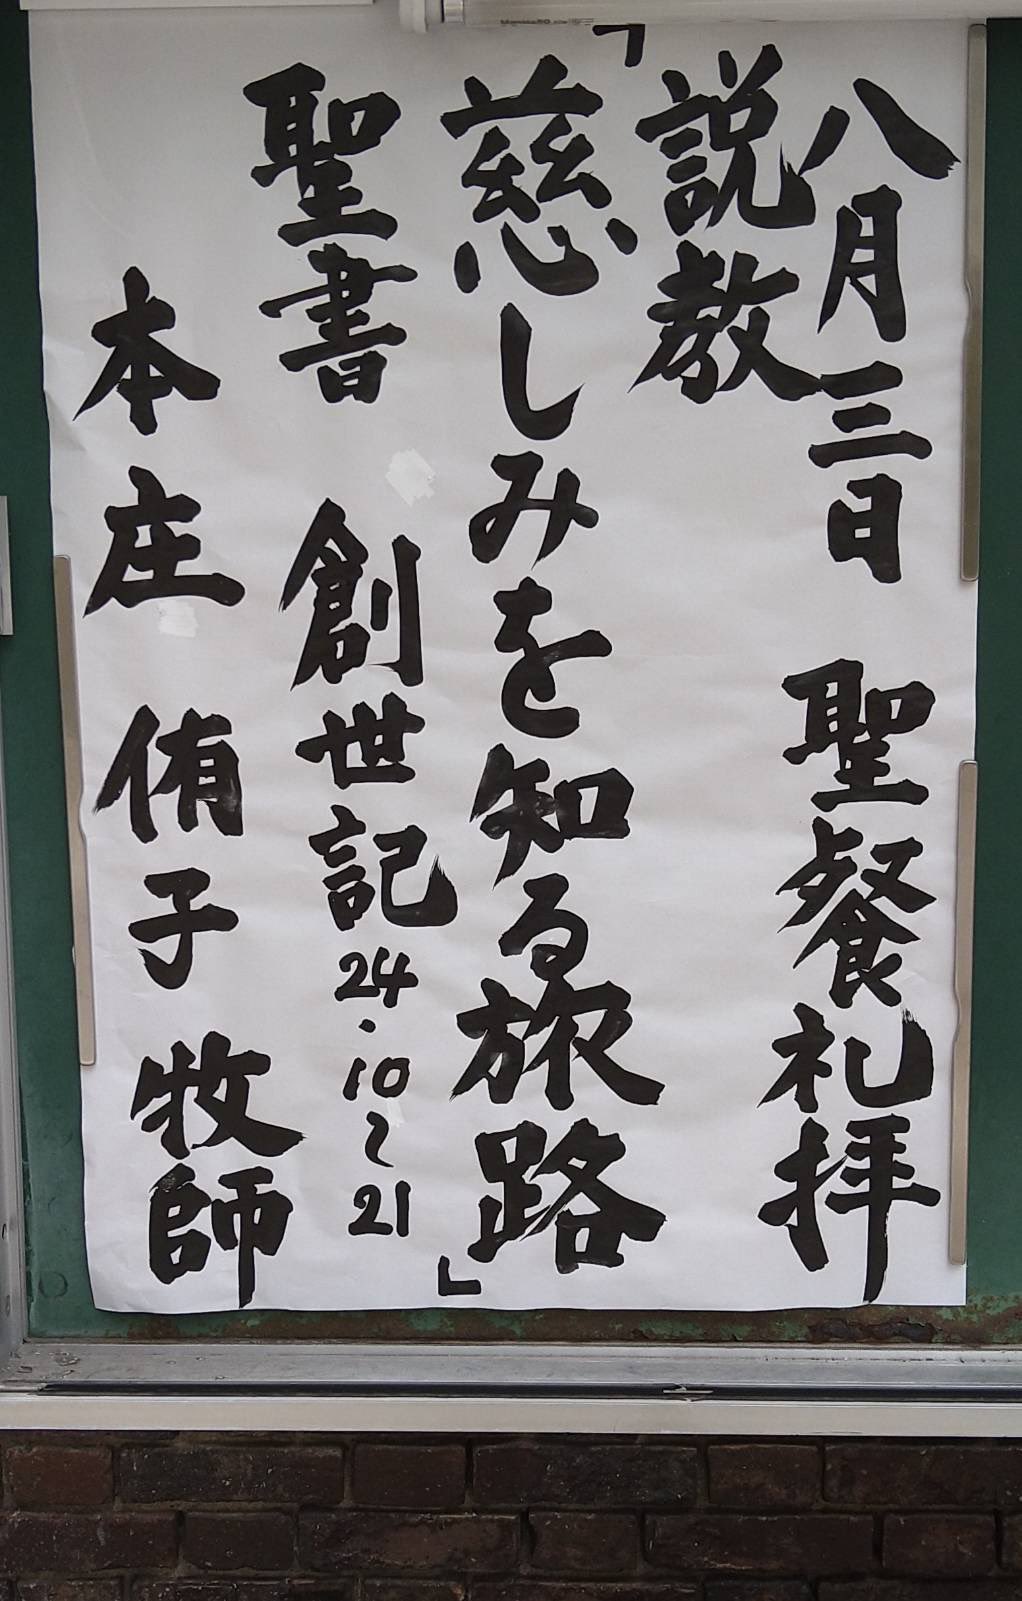 八月三日 聖餐礼拝
説教
「慈しみを知る旅路」
聖書 創世記24・10〜21
本庄 侑子 牧師